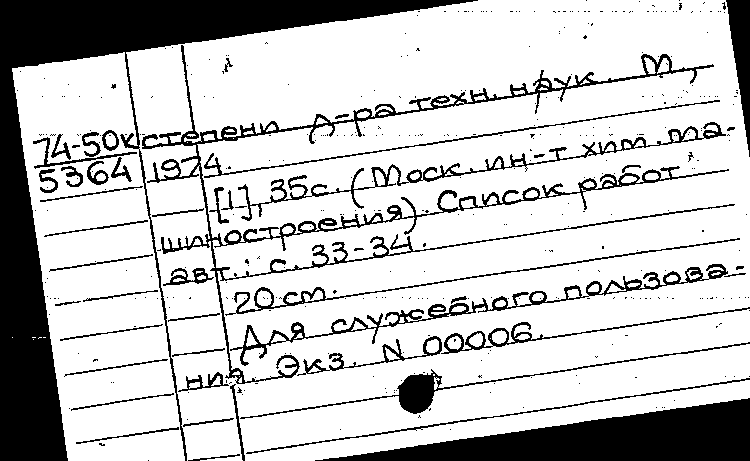 74-50к степени д-ра техн. наук. М.,
5364 1974.
[1], 35с. (Моск. ин-т хим. ма-
шиностроения). Список работ
авт.: с. 33-34.
20 см.
Для служебного пользова-
ния. Экз. N 00006.